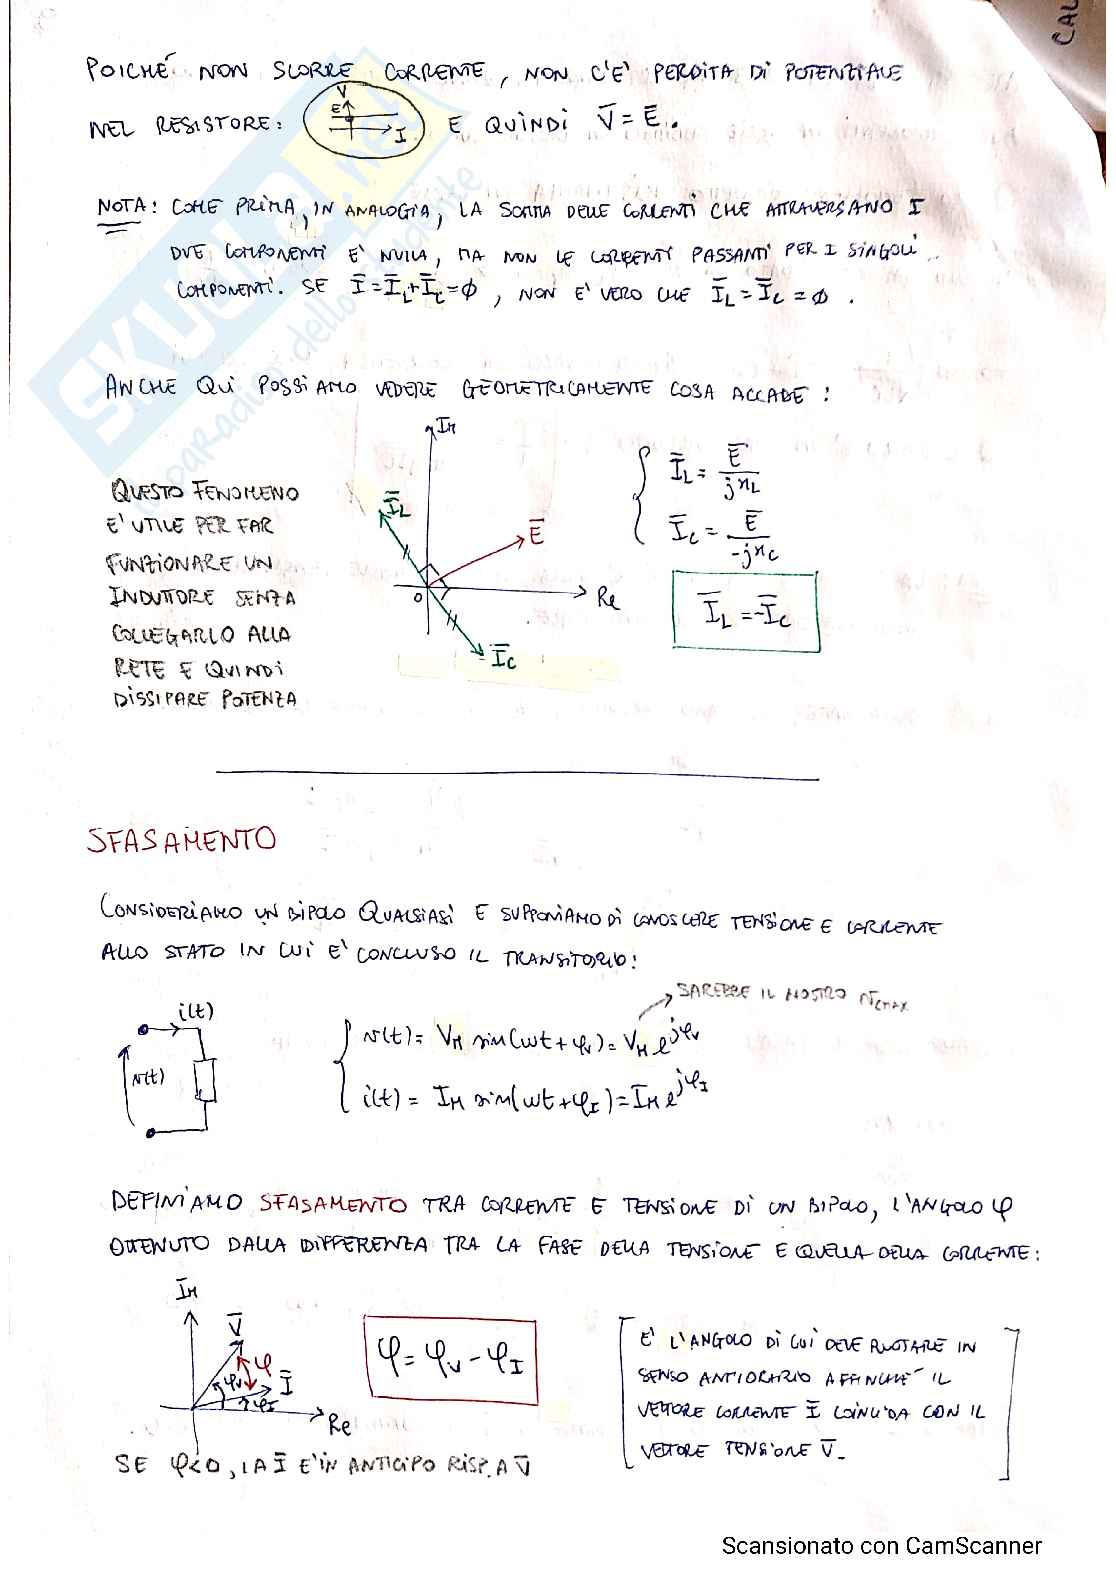 CAL
POICHÉ NON SCORRE CORRENTE, NON C'È PERDITA DI POTENZIALE
NEL RESISTORE: V E I E QUINDI V̅ = E̅.
NOTA: COME PRIMA, IN ANALOGIA, LA SOMMA DELLE CORRENTI CHE ATTRAVERSANO I
DUE COMPONENTI E' NULLA, MA NON LE CORRENTI PASSANTI PER I SINGOLI
COMPONENTI. SE I̅=I̅L+I̅C=ϕ, NON E' VERO CHE I̅L=I̅C=ϕ.
ANCHE QUI POSSIAMO VEDERE GEOMETRICAMENTE COSA ACCADE:
QUESTO FENOMENO
E' UTILE PER FAR
FUNZIONARE UN
INDUTTORE SENZA
COLLEGARLO ALLA
RETE E QUINDI
DISSIPARE POTENZA
Im
I̅L
E̅
O
Re
I̅C
I̅L = E̅ / jxL
I̅C = E̅ / -jxC
I̅L = -I̅C
SFASAMENTO
CONSIDERIAMO UN BIPOLO QUALSIASI E SUPPONIAMO DI CONOSCERE TENSIONE E CORRENTE
ALLO STATO IN CUI E' CONCLUSO IL TRANSITORIO:
SAREBBE IL NOSTRO
i(t)
v(t)
v(t) = VM sin(ωt + φV) = VM e^jφV
i(t) = IM sin(ωt + φI) = IM e^jφI
DEFINIAMO SFASAMENTO TRA CORRENTE E TENSIONE DI UN BIPOLO, L'ANGOLO φ
OTTENUTO DALLA DIFFERENZA TRA LA FASE DELLA TENSIONE E QUELLA DELLA CORRENTE:
Im
V̅
φ
φV
I̅
φI
Re
φ = φV - φI
E' L'ANGOLO DI CUI DEVE RUOTARE IN
SENSO ANTIORARIO AFFINCHÉ IL
VETTORE CORRENTE I̅ COINCIDA CON IL
VETTORE TENSIONE V̅.
SE φ<0, LA I̅ E' IN ANTICIPO RISP. A V̅
Scansionato con CamScanner